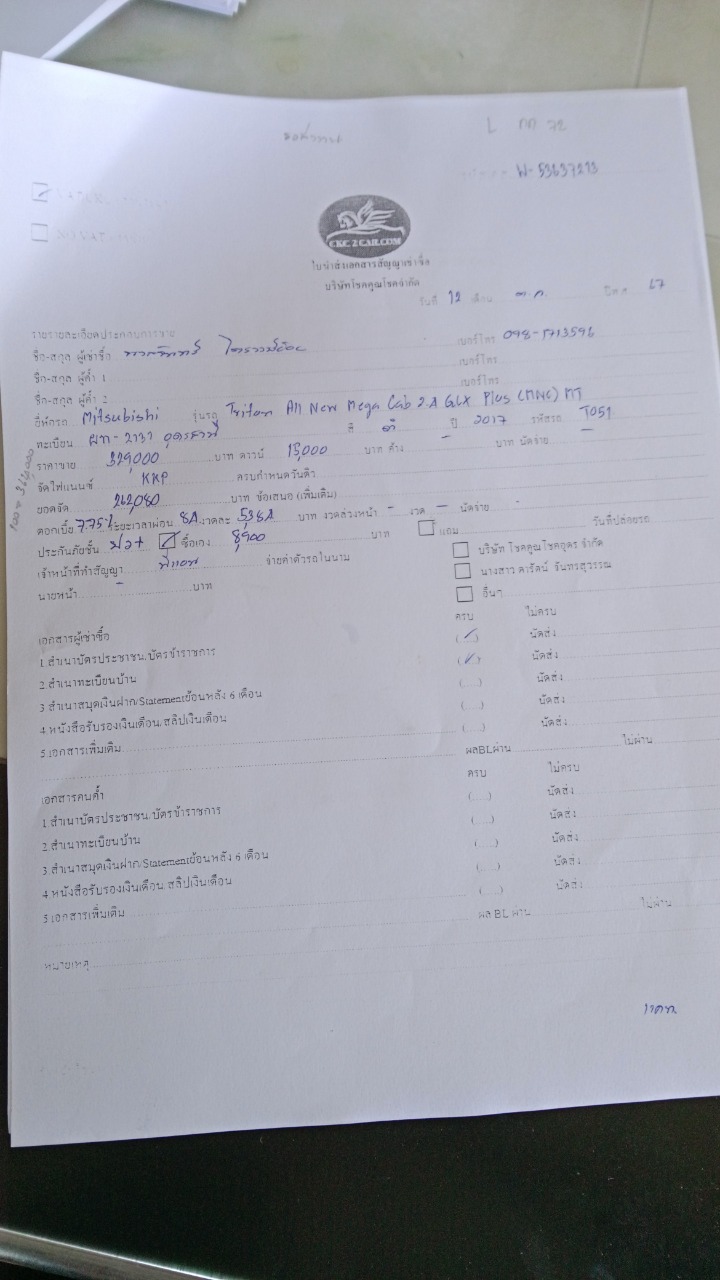 L กก 72
W-53637213
CKC 2 CAR.COM
ใบนำส่งเอกสารสัญญาเช่าซื้อ
บริษัทโชคคูณโชคจำกัด
วันที่ 12 เดือน ต.ค. ปีพ.ศ. 67
รายรายละเอียดประกอบการขาย
ชื่อ-สกุล ผู้เช่าซื้อ เบอร์โทร
ชื่อ-สกุล ผู้ค้ำ 1 เบอร์โทร
ชื่อ-สกุล ผู้ค้ำ 2 เบอร์โทร
ยี่ห้อรถ Mitsubishi รุ่นรถ Triton All New Mega Cab 2.4 GLX Plus (MNC) MT
ทะเบียน ผท-2131 อุดรธานี สี ดำ ปี 2017 รหัสรถ T051
ราคาขาย 329,000 บาท ดาวน์ 15,000 บาท ค้าง - บาท นัดจ่าย -
จัดไฟแนนซ์ KKP ครบกำหนดวันที่
ยอดจัด 262,080 บาท ข้อเสนอ (เพิ่มเติม)
ดอกเบี้ย 7.75% ระยะเวลาผ่อน 84 งวดละ 5,384 บาท งวดล่วงหน้า - งวด - นัดจ่าย
ประกันภัยชั้น ซื้อเอง 8,900 บาท แถม วันที่ปล่อยรถ
เจ้าหน้าที่ทำสัญญา จ่ายค่าตัวรถในนาม บริษัท โชคคูณโชคอุดร จำกัด
นายหน้า - บาท นางสาว ดารัตน์ จันทรสุวรรณ
อื่นๆ
เอกสารผู้เช่าซื้อ ครบ ไม่ครบ
1.สำเนาบัตรประชาชน/บัตรข้าราชการ (/) นัดส่ง
2.สำเนาทะเบียนบ้าน (/) นัดส่ง
3.สำเนาสมุดเงินฝาก/Statementย้อนหลัง 6 เดือน (....) นัดส่ง
4.หนังสือรับรองเงินเดือน/สลิปเงินเดือน (....) นัดส่ง
5.เอกสารเพิ่มเติม
ผลBLผ่าน ไม่ผ่าน
เอกสารคนค้ำ ครบ ไม่ครบ
1.สำเนาบัตรประชาชน/บัตรข้าราชการ (....) นัดส่ง
2.สำเนาทะเบียนบ้าน (....) นัดส่ง
3.สำเนาสมุดเงินฝาก/Statementย้อนหลัง 6 เดือน (....) นัดส่ง
4.หนังสือรับรองเงินเดือน/สลิปเงินเดือน (....) นัดส่ง
5.เอกสารเพิ่มเติม (....) นัดส่ง
ผล BL ผ่าน ไม่ผ่าน
หมายเหตุ